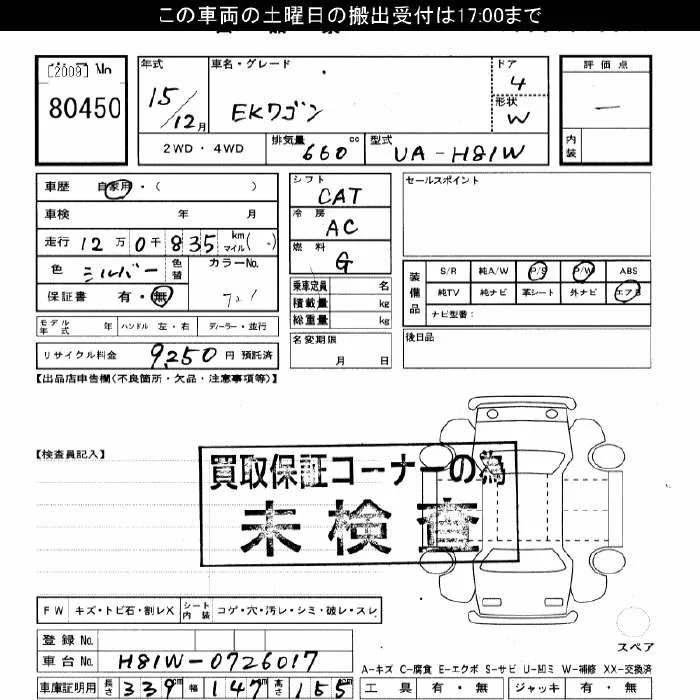 この車両の土曜日の搬出受付は17:00まで
[2009] No
80450
年式
15/12月
車名・グレード
EKワゴン
ドア
4
形状
W
評価点
—
内装
2WD・4WD
排気量
660 cc
型式
UA-H81W
車歴 自家用・( )
車検 年 月
走行 12万0千835 km マイル( )
色 シルバー 色替 カラーNo.
保証書 有・無
モデル年式 年 ハンドル 左・右 ディーラー・並行
リサイクル料金 9,250 円 預託済
シフト
CAT
冷房
AC
燃料
G
乗車定員 名
積載量 kg
総重量 kg
名変期限
月 日
セールスポイント
装備品
S/R 純A/W P/S P/W ABS
純TV 純ナビ 革シート 外ナビ エアB
ナビ型番:
後日品
【出品店申告欄(不良箇所・欠品・注意事項等)】
【検査員記入】
買取保証コーナーの為
未検査
FW キズ・トビ石・割レX シート内装 コゲ・穴・汚レ・シミ・破レ・スレ
スペア
登録No.
車台No. H81W-0726017
車庫証明用 長さ 339cm 幅 147cm 高さ 155cm
A-キズ C-腐食 E-エクボ S-サビ U-凹ミ W-補修 XX-交換済
工具 有・無 ジャッキ 有・無